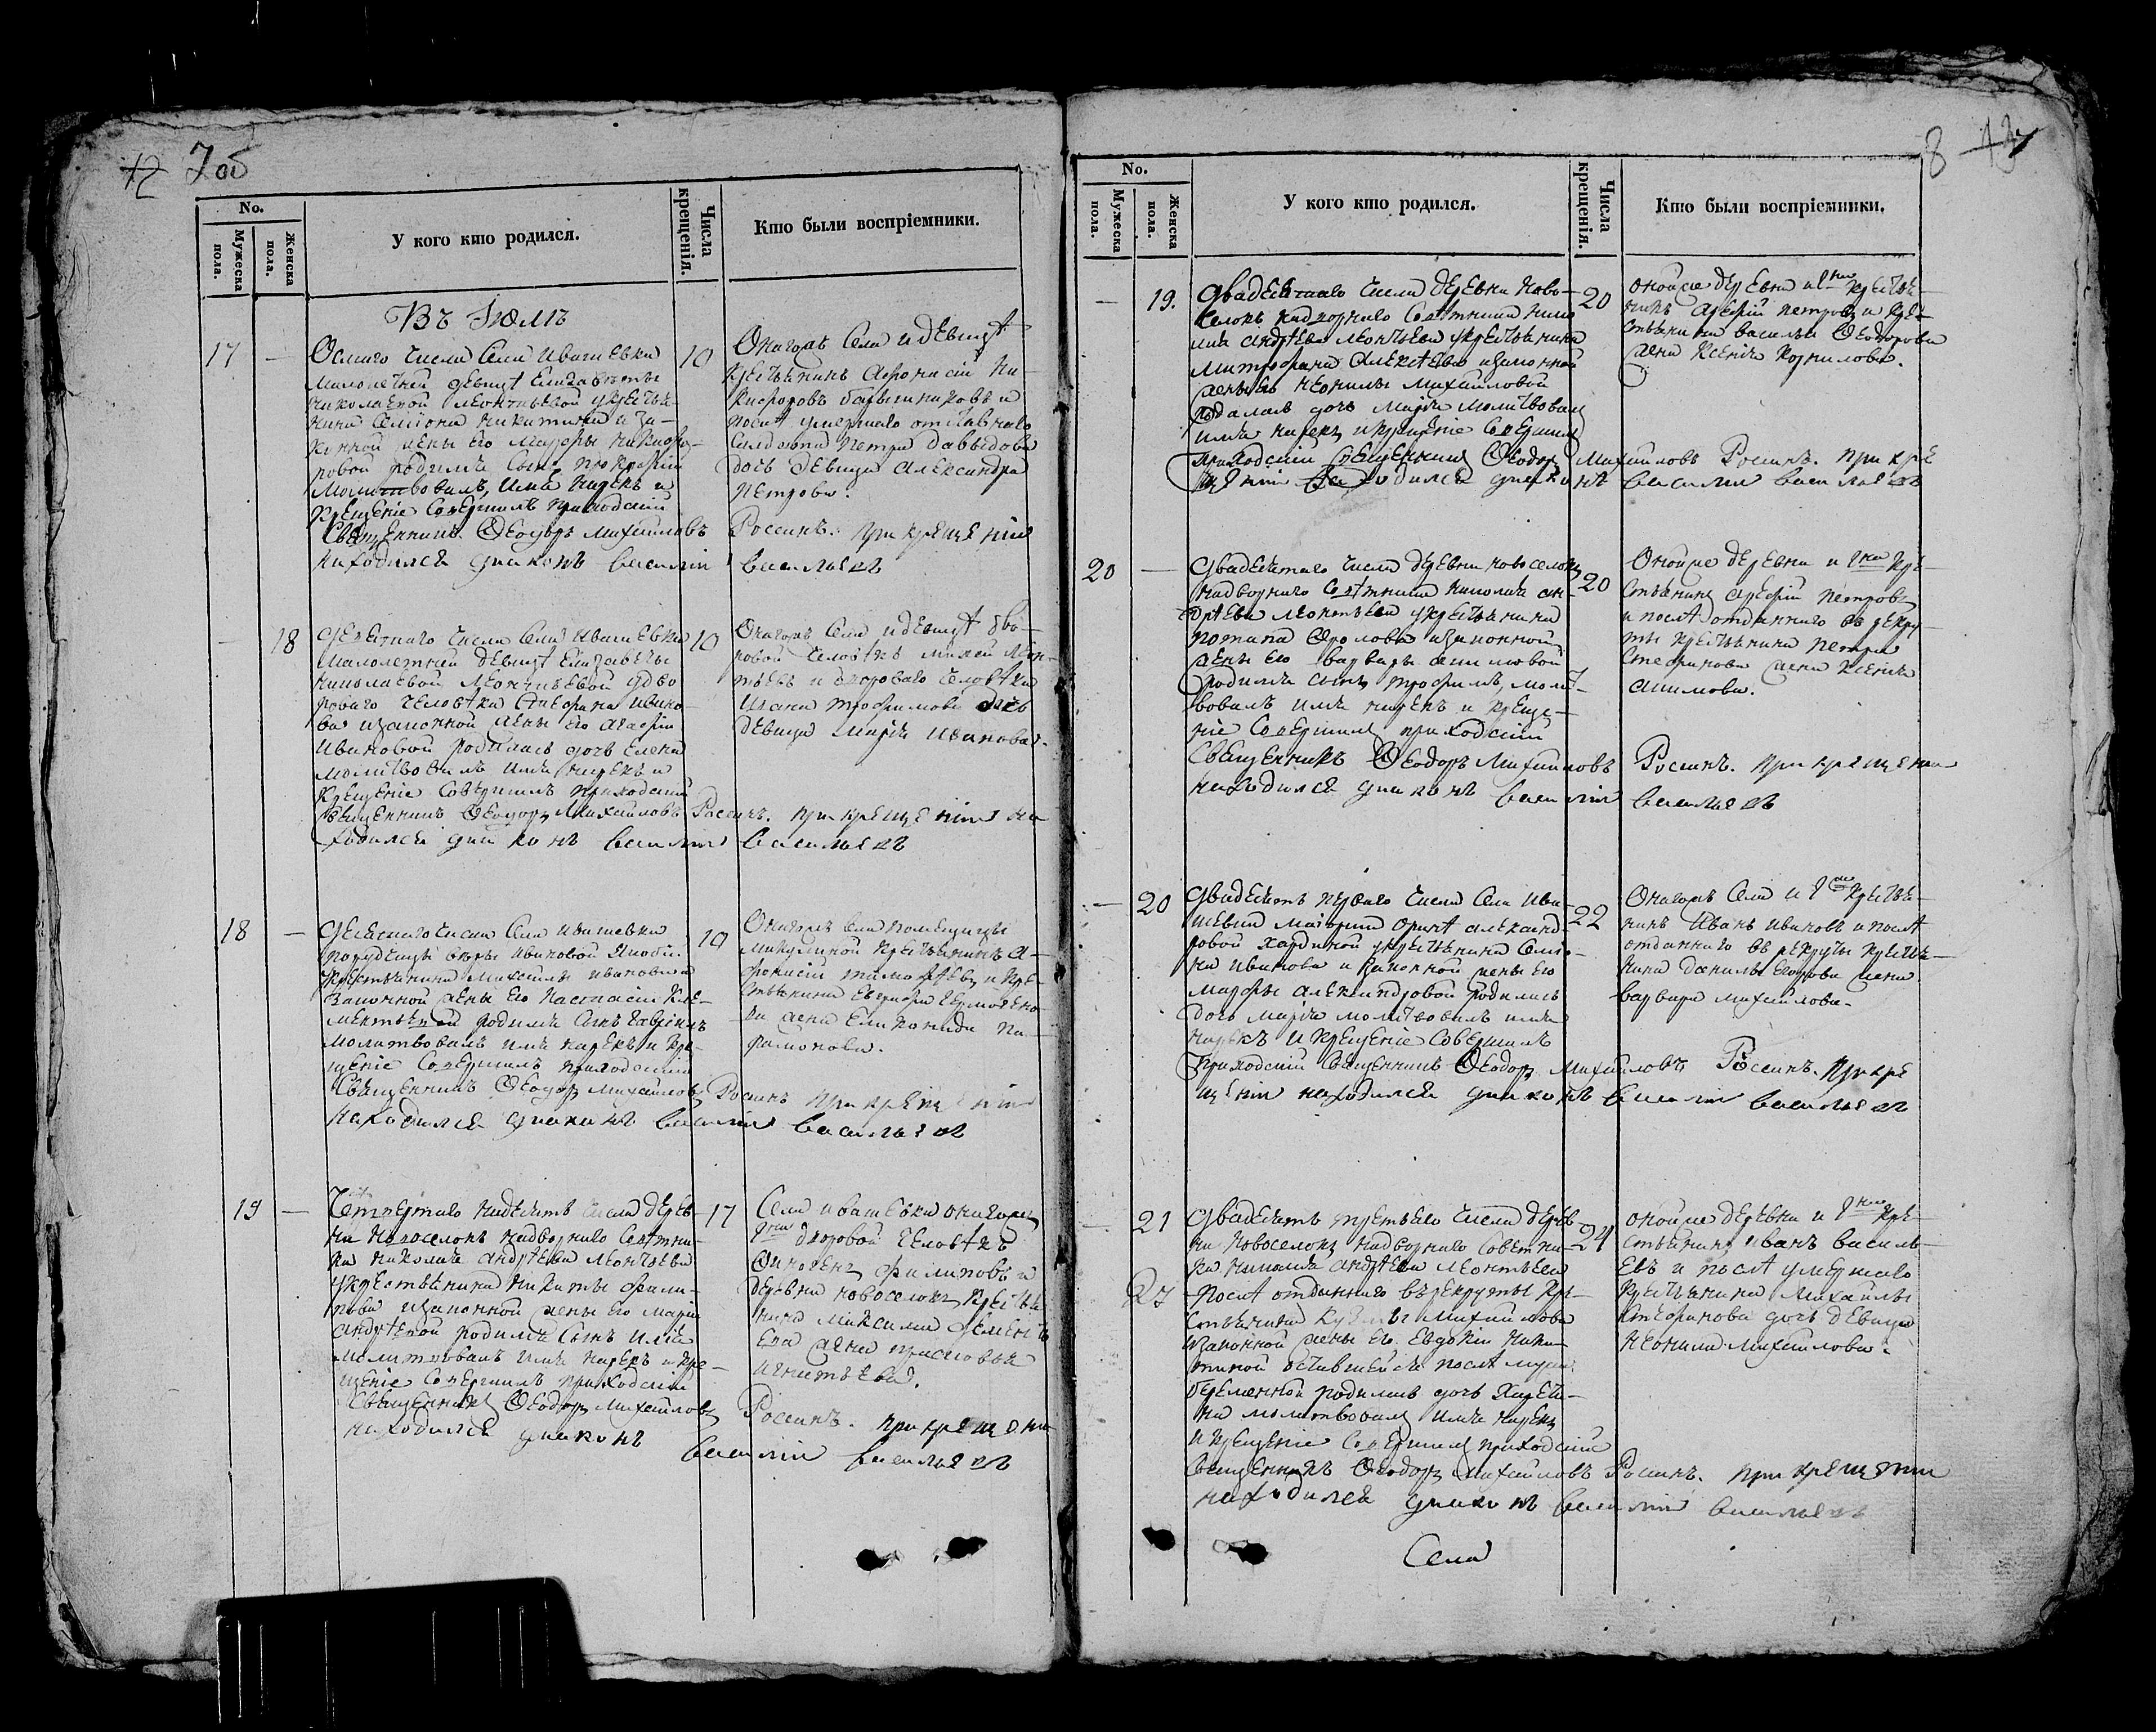 12 7об
No.
Мужеска пола.
Женска пола.
У кого кто родился.
Числа крещенія.
Кто были воспріемники.
Въ Іюлѣ
17 — 10
Осмаго числа Села Ивашевки
малолетней девицѣ Елизаветы
николаевой леонтьевой укрестья-
нина Симiона никитина и за-
конной жены его Мавры никифо-
ровой родился Сынъ
молитвовалъ, имя нарекъ и
крещеніе Совершилъ приходскій
Священникъ Ѳеодоръ михайловъ Россинъ. при крещеніи
находился диаконъ василій васильевъ
Онагожъ Села и девицѣ
крестьянинъ Афонасій Ни-
кифоровъ и
послѣ умершаго отставнаго
Салдата Петра давыдова
дочь девица Александра
Петрова.
— 18 10
Девятаго числа Села Ивашевки
малолетней девицѣ Елизаветы
николаевой леонтьевой удво
роваго человѣка Стефана ивано-
ва изаконной жены его агафіи
ивановой родилась дочь Елена
молитвовалъ имя нарекъ и
крещеніе Совершилъ приходскій
Священникъ Ѳеодоръ Михайловъ Россинъ. при крещеніи на
ходился диаконъ василій васильевъ
Онагожъ Села и девицѣ дво-
ровой человѣкъ михей Леон-
тьевъ и двороваго человѣка
Ивана трофимова дочь
девица марія иванова.
18 — 10
Девятаго числа Села ивашевки
порутчицы вѣры ивановой
крестьянина Михайлы иванова и
Законной жены его Настасіи Кле-
ментьевой родился Сынъ Гаврiилъ
молитвовалъ имя нарекъ и кре-
щеніе Совершилъ приходскій
Священникъ Ѳеодоръ михайловъ Россинъ при крещеніи
находился диаконъ василій васильевъ
Онагожъ села помещицы
Микулиной крестьянинъ А-
фонасій тимофѣевъ и кре-
стьянина Евграфа Ермолено-
ва жена Еликонида Па-
рамонова.
19 — 17
Четвертаго надесять числа дерев-
ни новоселокъ надворнаго Совѣтни-
ка николая андрѣева леонтьева
укрестьянина никиты фили-
пьва изаконной жены его маріи
андрѣевой родился Сынъ илія
молитвовалъ имя нарекъ и кре-
щеніе Совершилъ приходскій
Священникъ Ѳеодоръ михайловъ Россинъ. при крещени
находился диаконъ василій васильевъ
Села ивашевки онагожъ
Г-на дворовой человѣкъ
филиповъ и
деревни новоселокъ крестья-
нина Максима
ева жена прасковья
игнатьева.
8 13
No.
Мужеска пола.
Женска пола.
У кого кто родился.
Числа крещенія.
Кто были воспріемники.
— 19. 20
двадесятаго числа деревни ново-
селокъ надворнаго Совѣтника нико
лая андрѣева леонтьева укрестьянина
Митрофана Алексѣева изаконной
жены его неонилы михайловой
родилась дочь марія молитвовалъ
имя нарекъ икрещеніе Совершилъ
приходскій Священникъ Ѳеодоръ михайловъ Россинъ. при кре
щеніи находился диаконъ василій васильевъ
оной же деревни и г-на крестья-
нинъ Арефій петровъ и кре-
стьянина василья Ѳеодорова
жена Ксенія Корнилова.
20 — 20
двадесятаго числа деревни новоселокъ
надворнаго Совѣтника николая ан-
дрѣева леонтьева укрестьянина
потапа Фролова изаконной
жены его варвары
родился сынъ трофимъ, молит-
вовалъ имя нарекъ и креще-
ніе Совершилъ приходскій
Священникъ Ѳеодоръ Михайловъ Россинъ. при крещени
находился диаконъ василій васильевъ
Оной же деревни и г-на кре-
стьянинъ арефій петровъ
и послѣ отданнаго в рекру-
ты крестьянина петра
Стефанова жена ксенія
акимова.
— 20 22
двадесять перваго числа Села Ива-
шевки маіорши ориѣ александ-
ровой хардиной укрестьянина Симо-
на иванова и Законной жены его
Мавры александровой родилась
дочь марія молитвовалъ имя
нарекъ и крещеніе Совершилъ
приходскій Священникъ Ѳеодоръ михайловъ Россинъ. при кре
щеніи находился диаконъ василій васильевъ
Онагожъ Села и г-жи крестья-
нинъ Иванъ ивановъ и послѣ
отданнаго в рекруты крестья-
нина данилы Егорова жена
варвара михайлова.
— 21 24
двадесять третьего числа дерев-
ни новоселокъ надворнаго Советни-
ка николая андрѣева леонтьева
послѣ отданнаго врекруты кре-
стьянина Кузьмы михайлова
изаконной жены его Евдокіи ники-
тиной оставшейся послѣ мужа
беременной родилась дочь Харети-
на молитвовалъ имя нарекъ
и крещеніе Совершилъ приходскій
Священникъ Ѳеодоръ михайловъ Россинъ. при крещеніи
находился диаконъ василій васильевъ
оной же деревни и г-на кре-
стьянинъ иванъ василь-
евъ и послѣ умершаго
крестьянина Михайлы
Стефанова дочь девица
неонила михайлова.
Села